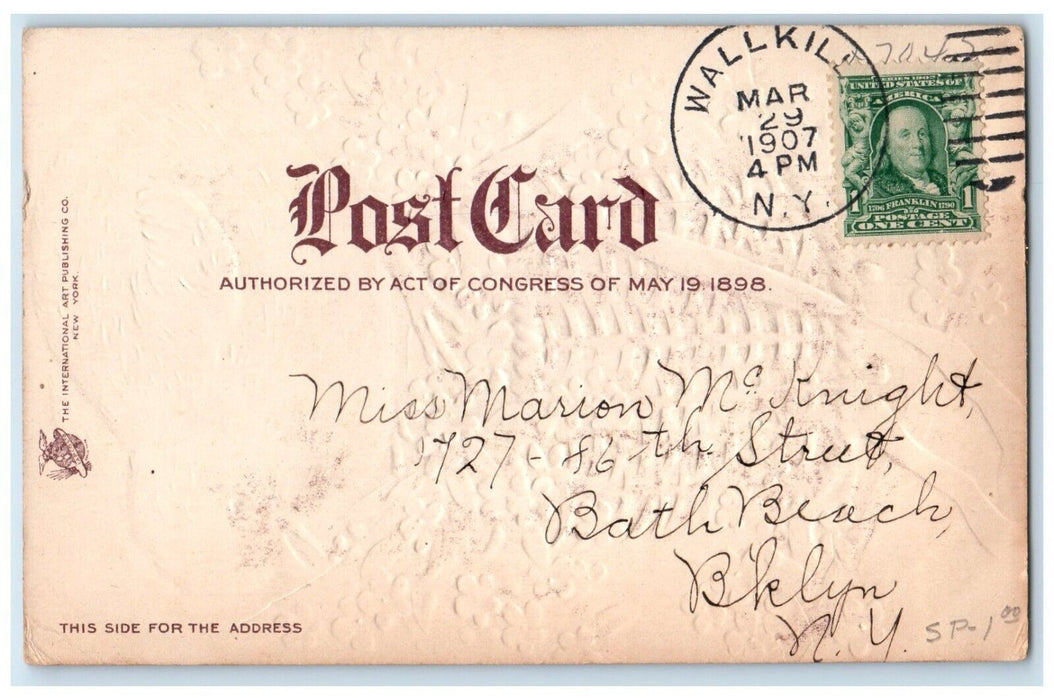 WALLKILL
MAR
29
1907
4 PM
N.Y.
SERIES 1902
UNITED STATES OF
AMERICA
1 1706 FRANKLIN 1790 1
POSTAGE
ONE CENT
Post Card
AUTHORIZED BY ACT OF CONGRESS OF MAY 19.1898.
THE INTERNATIONAL ART PUBLISHING CO.
NEW YORK.
Miss Marion Mc Knight,
1727-86th Street,
Bath Beach,
B'klyn
N.Y.
THIS SIDE FOR THE ADDRESS
SP-1 00